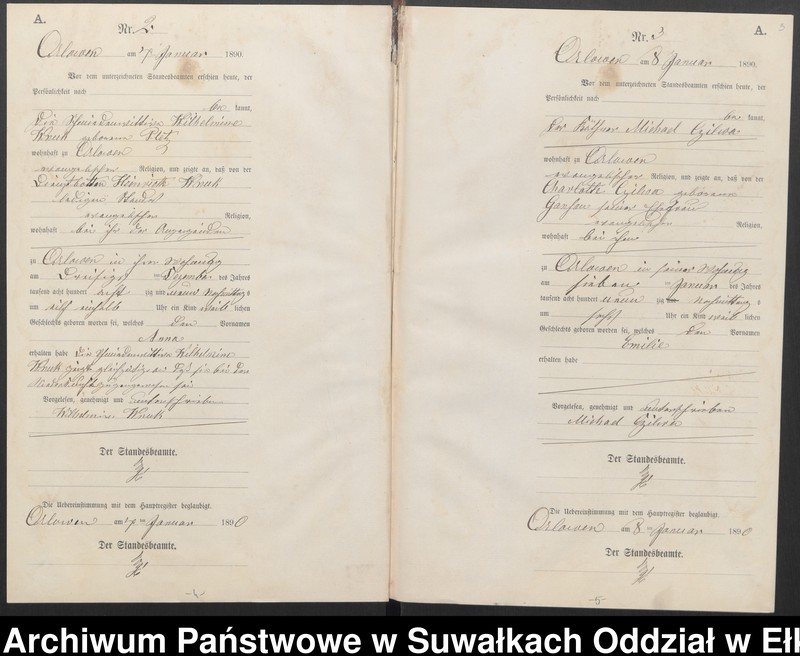 A.
Nr. 2
Orlowen am 7 Januar 1890.
Vor dem unterzeichneten Standesbeamten erschien heute, der
Persönlichkeit nach
be kannt,
die Wilhelmine
Kruk geborene
wohnhaft zu Orlowen
evangelischer Religion, und zeigte an, daß von der
Heinrich Kruk
evangelischer Religion,
wohnhaft bei ihr der Anzeigenden
zu Orlowen in ihrer Behausung
am Dreißigsten Dezember des Jahres
tausend acht hundert acht zig und neun Nachmittags
um elf einhalb Uhr ein Kind weib lichen
Geschlechts geboren worden sei, welches den Vornamen
Anna
erhalten habe Die Wilhelmine
Kruk zeigt gleichzeitig an daß sie bei der
Niederkunft zugegen gewesen sei
Vorgelesen, genehmigt und unterschrieben
Wilhelmine Kruk
Der Standesbeamte.
Die Uebereinstimmung mit dem Hauptregister beglaubigt.
Orlowen am 7 ten Januar 1890
Der Standesbeamte.
-4-
A. 3
Nr. 3
Orlowen am 8 Januar 1890.
Vor dem unterzeichneten Standesbeamten erschien heute, der
Persönlichkeit nach
be kannt,
der Käthner Michael
wohnhaft zu Orlowen
evangelischer Religion, und zeigte an, daß von der
Charlotte geborene
seiner Ehefrau
evangelischer Religion,
wohnhaft bei ihm
zu Orlowen in seiner Behausung
am sieben ten Januar des Jahres
tausend acht hundert neun zig Nachmittag s
um Uhr ein Kind weib lichen
Geschlechts geboren worden sei, welches den Vornamen
Emilie
erhalten habe
Vorgelesen, genehmigt und unterschrieben
Michael
Der Standesbeamte.
Die Uebereinstimmung mit dem Hauptregister beglaubigt.
Orlowen am 8 ten Januar 1890
Der Standesbeamte.
-5-
Archiwum Państwowe w Suwałkach Oddział w Ełk